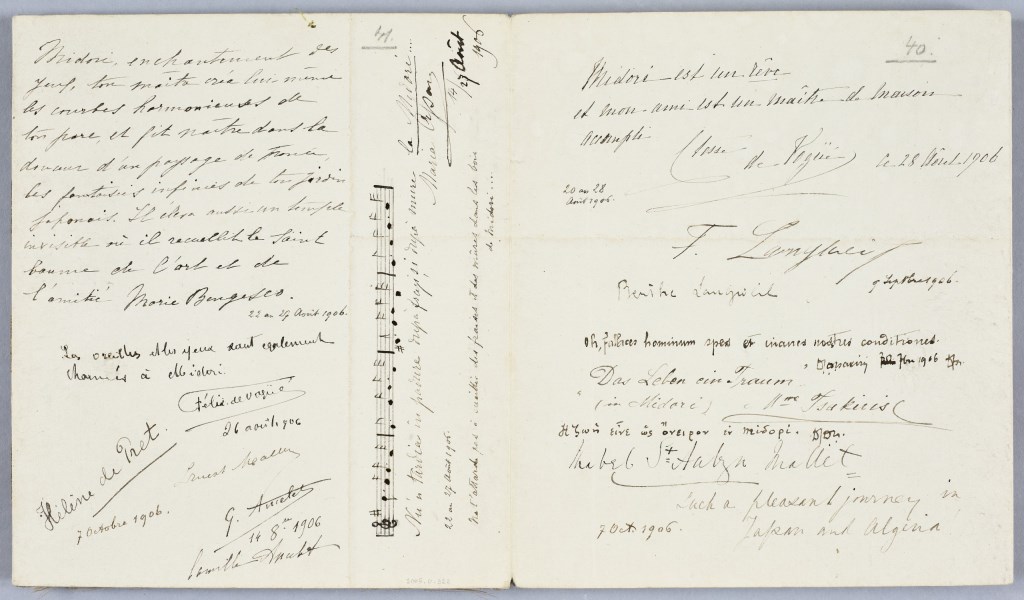 Midori, enchantement des
yeux, ton maître créa lui-même
les courbes harmonieuses de
ton parc, et fit naître dans la
douceur d'un paysage de France,
les fantaisies infinies de ton jardin
japonais. Il éleva aussi un temple
invisible où il recueillit le Saint
baume de l'art et de
l'amitié. Marie Bengesco.
22 au 27 Août 1906.
Les oreilles et les yeux sont également
charmés à Midori.
Félix de Vogüé
26 août 906
Hélène de Pret.
7 Octobre 1906.
Ernest
G. Ancelet
14 8bre 1906
41.
la Midori...
Maria
27 Août
1906
22 au 27 Août 1906.
de Midori...
40.
Midori est un rêve
et mon ami est un maître de maison
accompli
Ctesse de Vogüé
ce 28 Août 1906
20 au 28
Août 1906.
F. Langweil
9 Septbre 1906.
Berthe Langweil
Oh, fallaces hominum spes et inanes nostras conditiones.
7bre 1906
"Das Leben ein Traum"
(in Midori) Mme Tsakiris
Ἡ ζωὴ εἶνε ὡς ὄνειρον ἐν Μιδορί.
Mabel St Aubyn Mallet
Such a pleasant journey in
Japan and Algeria
7 Oct. 1906.